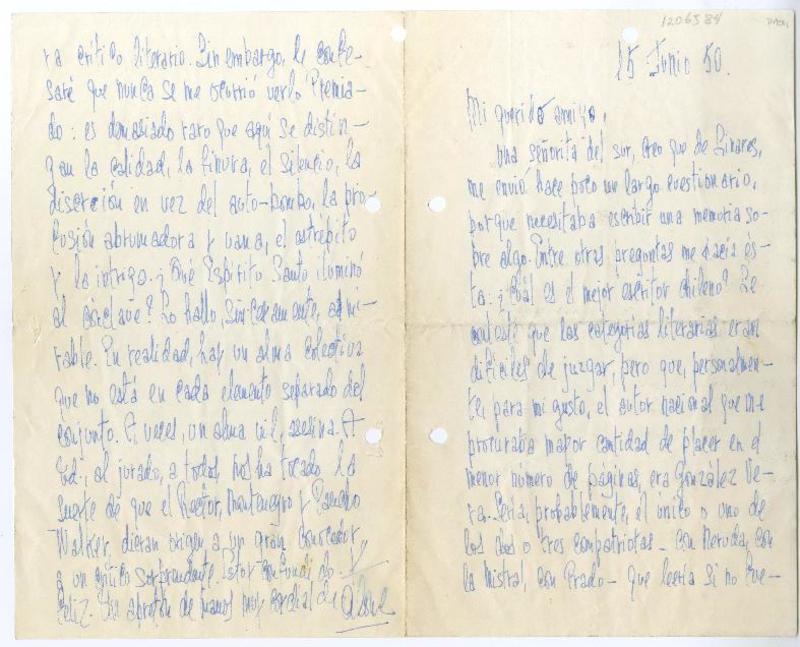 1206584
15 Junio 50.
Mi querido amigo,
Una señorita del sur, creo que de Linares,
me envió hace poco un largo cuestionario,
porque necesitaba escribir una memoria so-
bre algo. Entre otras preguntas me hacía és-
ta: ¿Cuál es el mejor escritor chileno? Le
contesté que las categorías literarias eran
difíciles de juzgar, pero que, personalmen-
te, para mi gusto, el autor nacional que me
procuraba mayor cantidad de placer en el
menor número de páginas, era González Ve-
ra. Sería, probablemente, el único o uno de
los dos o tres compatriotas - con Neruda, con
la Mistral, con Prado - que leería si no fue-
ra crítico literario. Sin embargo, le confe-
saré que nunca se me ocurrió verlo Premia-
do: es demasiado raro que aquí se distin-
gan la calidad, la finura, el silencio, la
discreción en vez del auto-bombo, la pro-
fusión abrumadora y vana, el estrépito
y la intriga. ¿Qué Espíritu Santo iluminó
al cónclave? Lo hallo, sinceramente, admi-
rable. En realidad, hay un alma colectiva
que no está en cada elemento separado del
conjunto. A veces, un alma vil, asesina. A
Ud., al jurado, a todos, nos ha tocado la
suerte de que el Rector, Montenegro y Pancho
Walker, dieran origen a un gran conocedor,
a un crítico sorprendente. Estoy confundido y
feliz. Un apretón de manos muy cordial de Alone